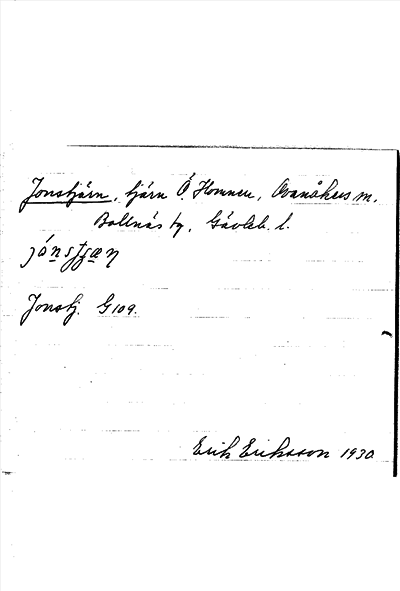 Jonstjärn, tjärn Ö. Homnen, Ovanåkers sn.
Bollnäs tg, Gävleb. l.
jónstjæn
Jonstj. G 109.
Erik Eriksson 1930